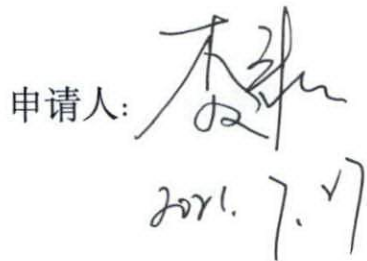 申请人:
2021. 7. 27